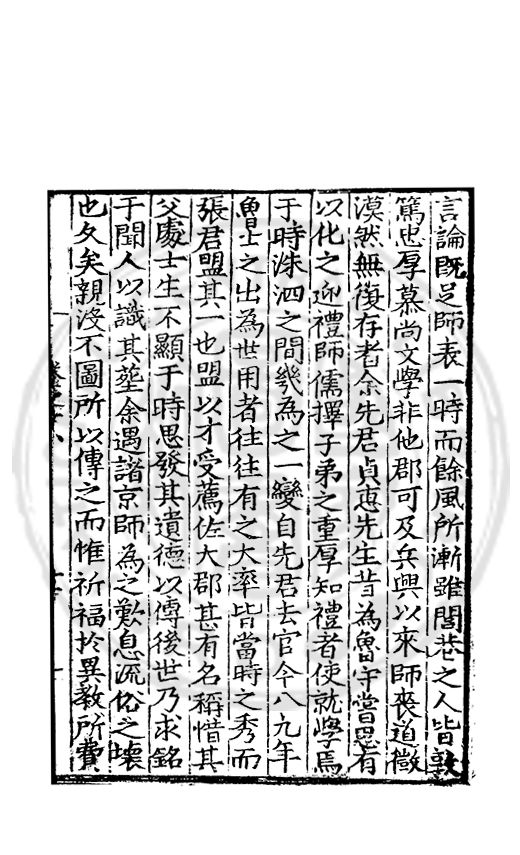 言論既足師表一時而餘風所漸雖閭巷之人皆敦
篤忠厚慕尚文學非他郡可及兵興以來師喪道微
漠然無復存者余先君貞惠先生昔為魯守嘗思有
以化之迎禮師儒擇子弟之重厚知禮者使就學焉
于時洙泗之間幾為之一變自先君去官今八九年
魯士之出為世用者往往有之大率皆當時之秀而
張君盟其一也盟以才受薦佐大郡甚有名稱惜其
父處士生不顯于時思發其遺德以傳後世乃求銘
于聞人以識其塋余遇諸京師為之歎息流俗之壞
也久矣親沒不圖所以傳之而惟祈福於異教所費